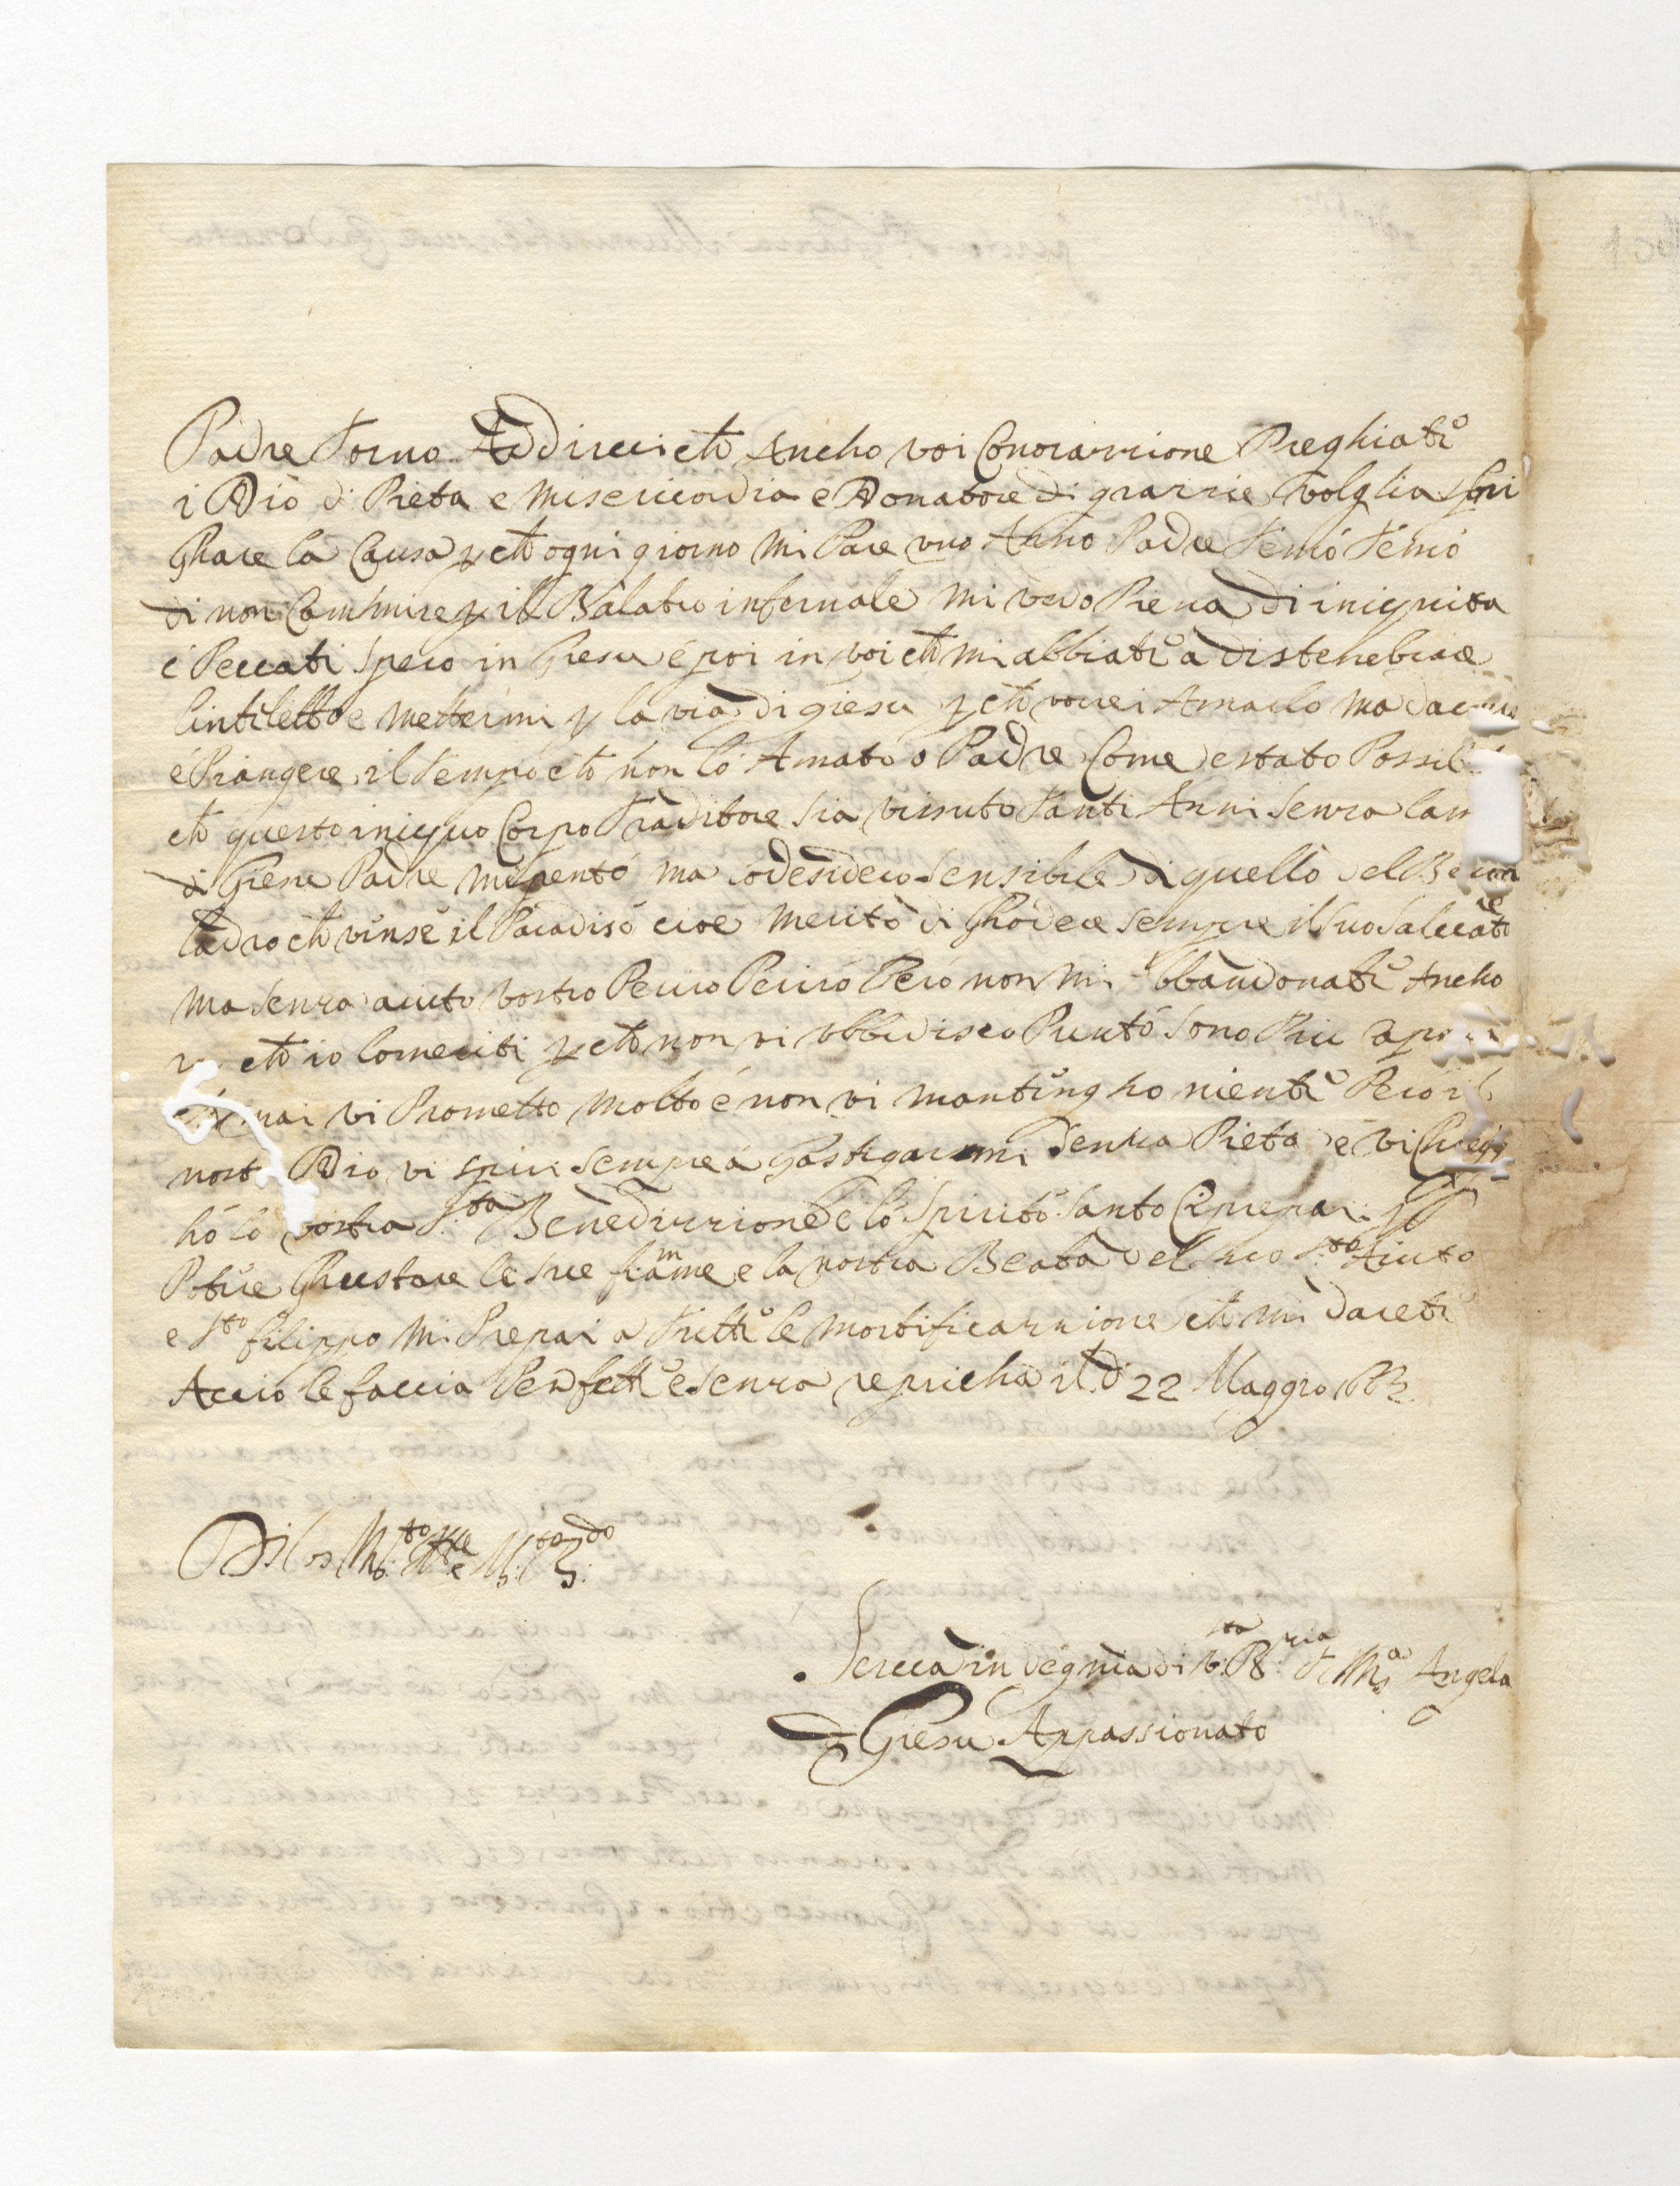 Padre Torno Addirui che Ancho voi Conorazzione Preghiate
i Dio di Pieta e Misericordia e Donatore di grazzie volglia sbri
ghare la Causa p che ogni giorno Mi Pare uno Anno Padre Temo Temo
di non Camminre p il Balatro infernale Mi vedo Piena di iniquita
é Peccati spero in Giesu é poi in voi che mi abbiate a distenebrare
lintiletto e Mettermi p la via di giesu p che vorrei Amarlo ma
é Piangere il Tempo che non lo Amato o Padre Come estato Possibi
che questo iniquo Corpo Traditore sia vissuto Tanti Anni Senza lam
di Giesu Padre mi pento ma lo desidero Sensibile di quello del
ladro che vinse il Paradiso cioe Merito di Ghodere Sempre il suo
Ma senza aiuto vostro Periro Periro Pero non Mi Abbandonate Ancho
che io lo meriti p che non vi ubbidisco Punto Sono Piu
mai vi Prometto Molto é non vi mantengho niente Pero il
nost Dio vi spiri Sempre a Gastigarmi Senza Pieta e vi Chiegi
ho la vostra S:ta Benedizzione e lo Spirito Santo Ci prepari
Potere Ghustare le sue fiamme e la nostra Beata del suo S:to Aiuto
e S:to filippo Mi Prepari a Tutte le Mortificazzione che Mi Darete
Accio le faccia Perfette e Senza repricha il di 22 Maggio
Di
Serva in degnia di V: R: S: M:a Angela
di Giesu Appassionato